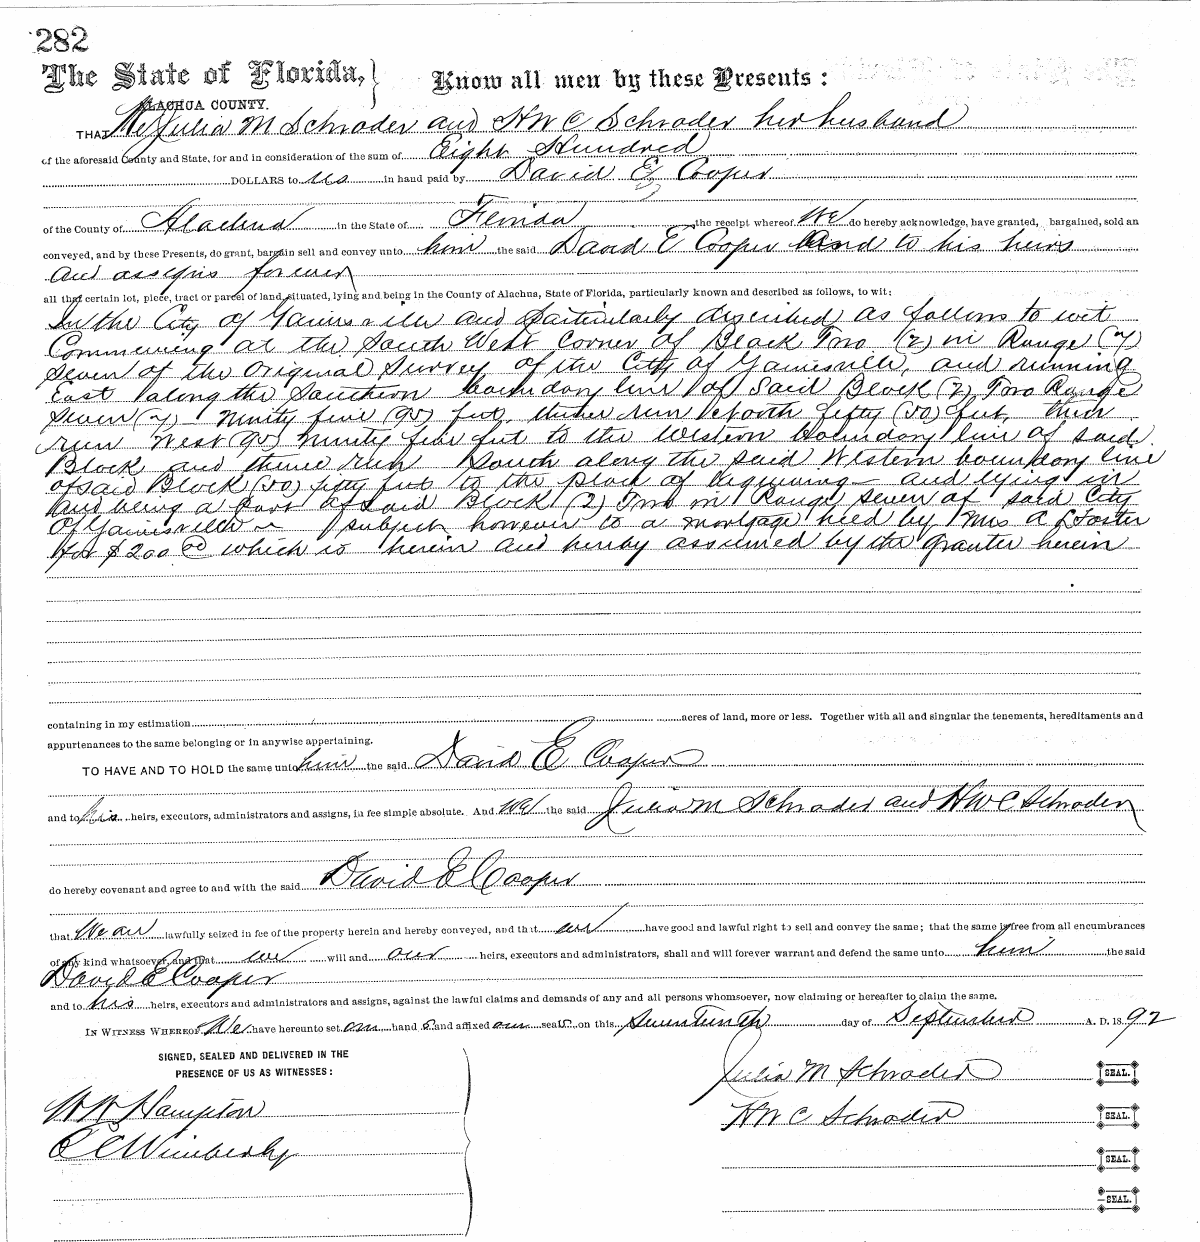 282
The State of Florida, } Know all men by these Presents :
ALACHUA COUNTY.
THAT We Julia M Schrader and H W C Schrader her husband
of the aforesaid County and State, for and in consideration of the sum of Eight Hundred
DOLLARS to us in hand paid by David E Cooper
of the County of Alachua in the State of Florida the receipt whereof We do hereby acknowledge, have granted, bargained, sold an
conveyed, and by these Presents, do grant, bargain sell and convey unto him the said David E Cooper and to his heirs
and assigns forever
all that certain lot, piece, tract or parcel of land, situated, lying and being in the County of Alachua, State of Florida, particularly known and described as follows, to wit:
In the City of Gainesville and particularly described as follows to wit
Commencing at the South West Corner of Block Two (2) in Range (7)
Seven of the Original Survey of the City of Gainesville, and running
East along the Southern boundary line of Said Block (2) Two Range
Seven (7) Ninety five (95) feet, thence run North fifty (50) feet, thence
run West (95) Ninety five feet to the Western boundary line of said
Block and thence run South along the said Western boundary line
of said Block (50) fifty feet to the place of beginning and lying in
and being a Part of said Block (2) Two in Range Seven of said City
Of Gainesville subject however to a mortgage held by Mrs A L Foster
for $200 00 which is herein and hereby assumed by the grantee herein
containing in my estimation acres of land, more or less. Together with all and singular the tenements, hereditaments and
appurtenances to the same belonging or in anywise appertaining.
TO HAVE AND TO HOLD the same unto him the said David E Cooper
and to his heirs, executors, administrators and assigns, in fee simple absolute. And We the said Julia M Schrader and H W C Schrader
do hereby covenant and agree to and with the said David E Cooper
that We are lawfully seized in fee of the property herein and hereby conveyed, and that we have good and lawful right to sell and convey the same; that the same is free from all encumbrances
of any kind whatsoever, and that we will and our heirs, executors and administrators, shall and will forever warrant and defend the same unto him the said
David E Cooper
and to his heirs, executors and administrators and assigns, against the lawful claims and demands of any and all persons whomsoever, now claiming or hereafter to claim the same.
IN WITNESS WHEREOF We have hereunto set our hand s and affixed our seals on this Seventeenth day of September A. D. 1892
SIGNED, SEALED AND DELIVERED IN THE
PRESENCE OF US AS WITNESSES:
Julia M Schrader SEAL.
W W Hampton
H W C Schrader SEAL.
C C Wimberly
SEAL.
SEAL.